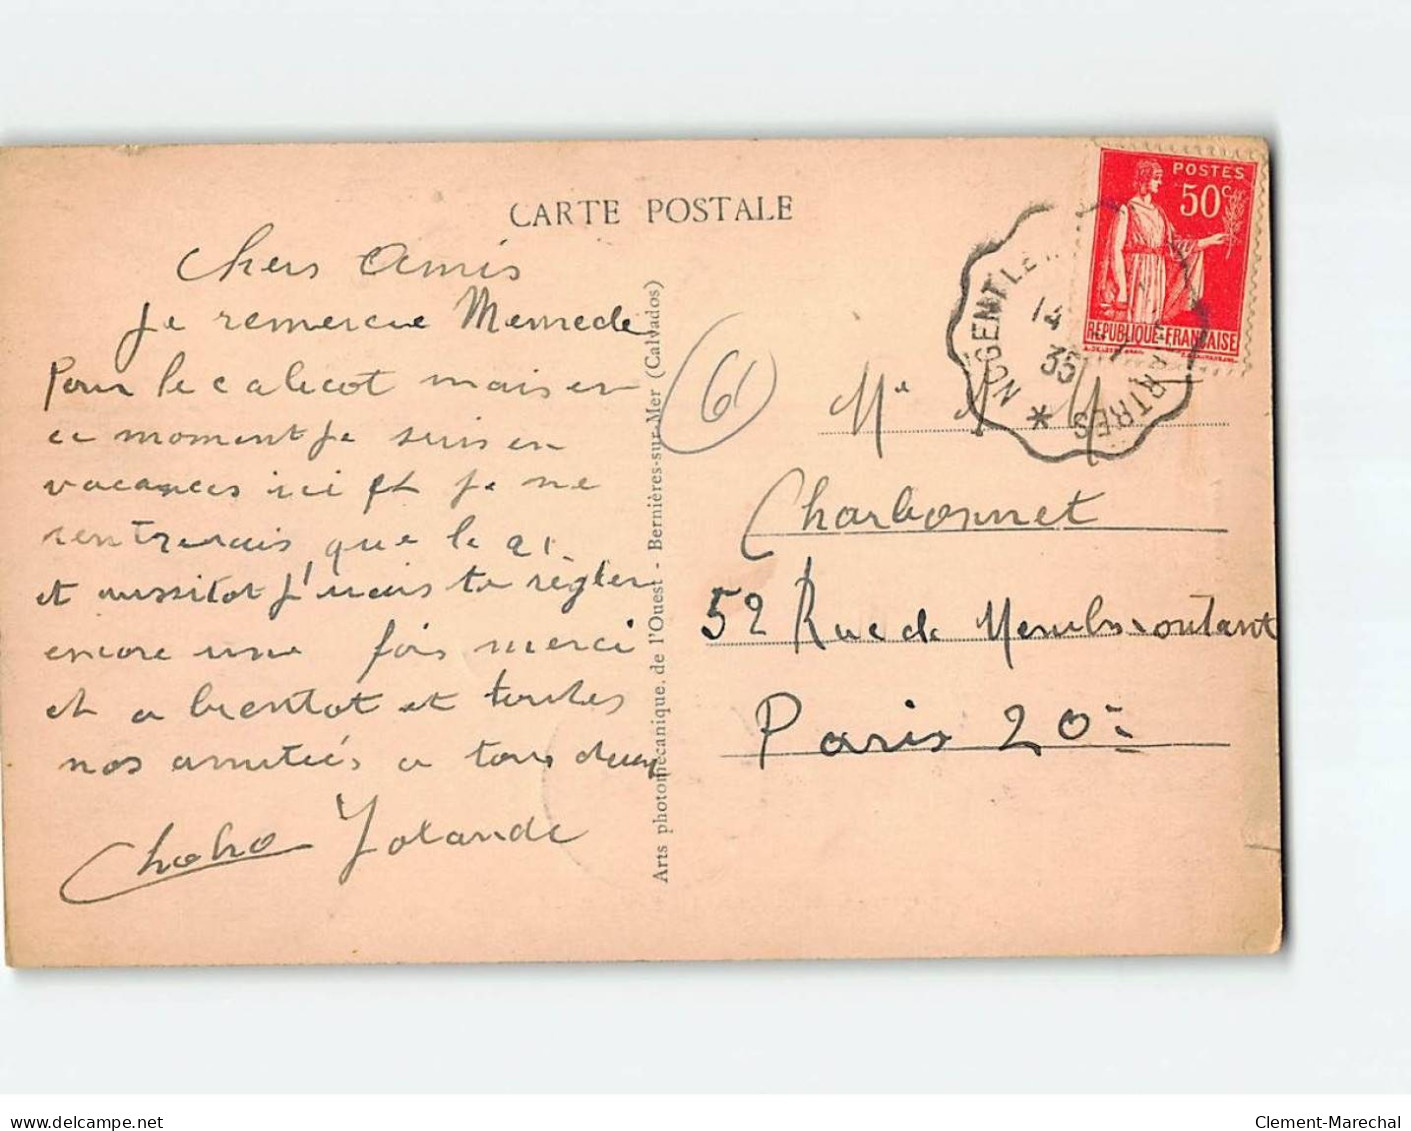 CARTE POSTALE
Chers Amis
Je remercie Memede
Pour le calicot mais en
ce moment je suis en
vacances ici et je ne
rentrerais que le 21
et aussitot j'irais te régler
encore une fois merci
et a bientot et toutes
nos amitiés a tous deux
Yolande
Arts photomécanique. de l'Ouest - Bernières-sur-Mer (Calvados)
61
POSTES
50c
RÉPUBLIQUE FRANÇAISE
NOGENT LE
CHARTRES
14
35
*
Charbonnet
52 Rue de Menilmontant
Paris 20è
www.delcampe.net
Clement-Marechal